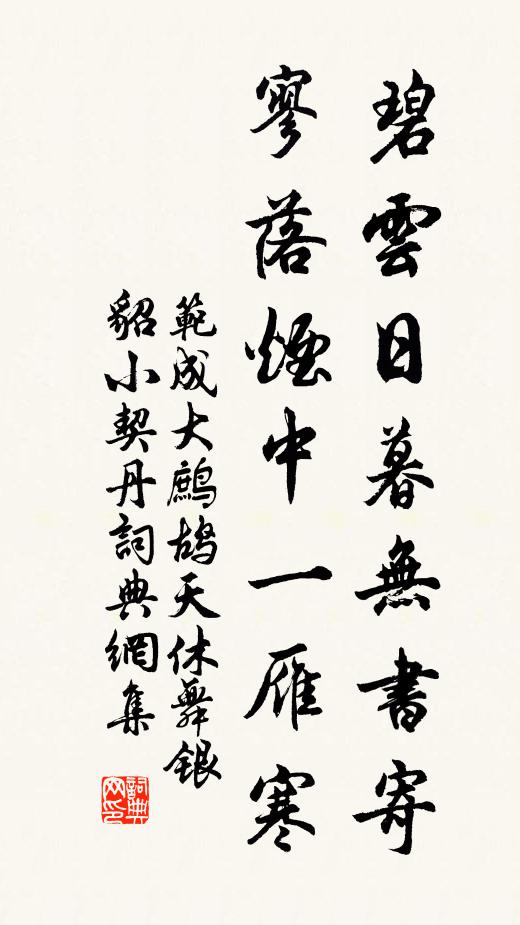 碧雲日暮無書寄
寥落煙中一雁寒
範成大鷓鴣天休舞銀
貂小契丹詞典網集
詞典
网印